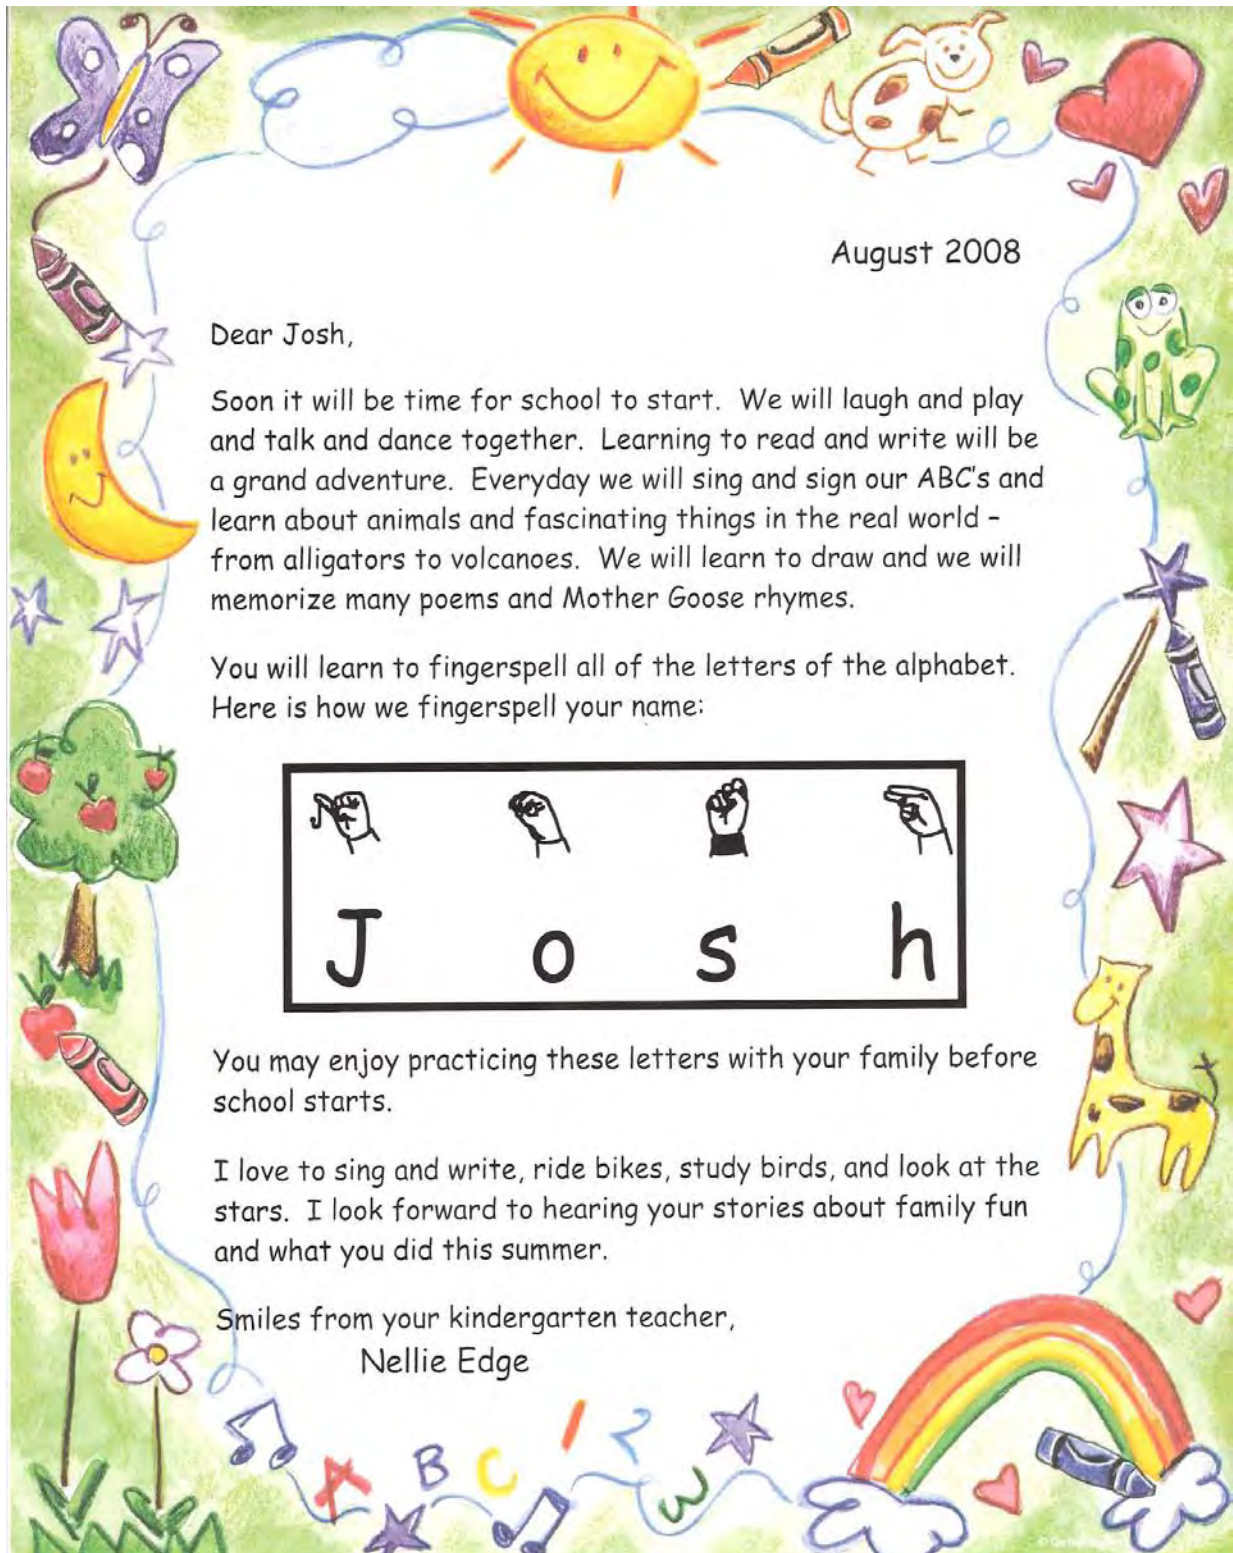 August 2008
Dear Josh,
Soon it will be time for school to start. We will laugh and play
and talk and dance together. Learning to read and write will be
a grand adventure. Everyday we will sing and sign our ABC's and
learn about animals and fascinating things in the real world –
from alligators to volcanoes. We will learn to draw and we will
memorize many poems and Mother Goose rhymes.
You will learn to fingerspell all of the letters of the alphabet.
Here is how we fingerspell your name:
J o s h
You may enjoy practicing these letters with your family before
school starts.
I love to sing and write, ride bikes, study birds, and look at the
stars. I look forward to hearing your stories about family fun
and what you did this summer.
Smiles from your kindergarten teacher,
Nellie Edge
A B C 1 2 3